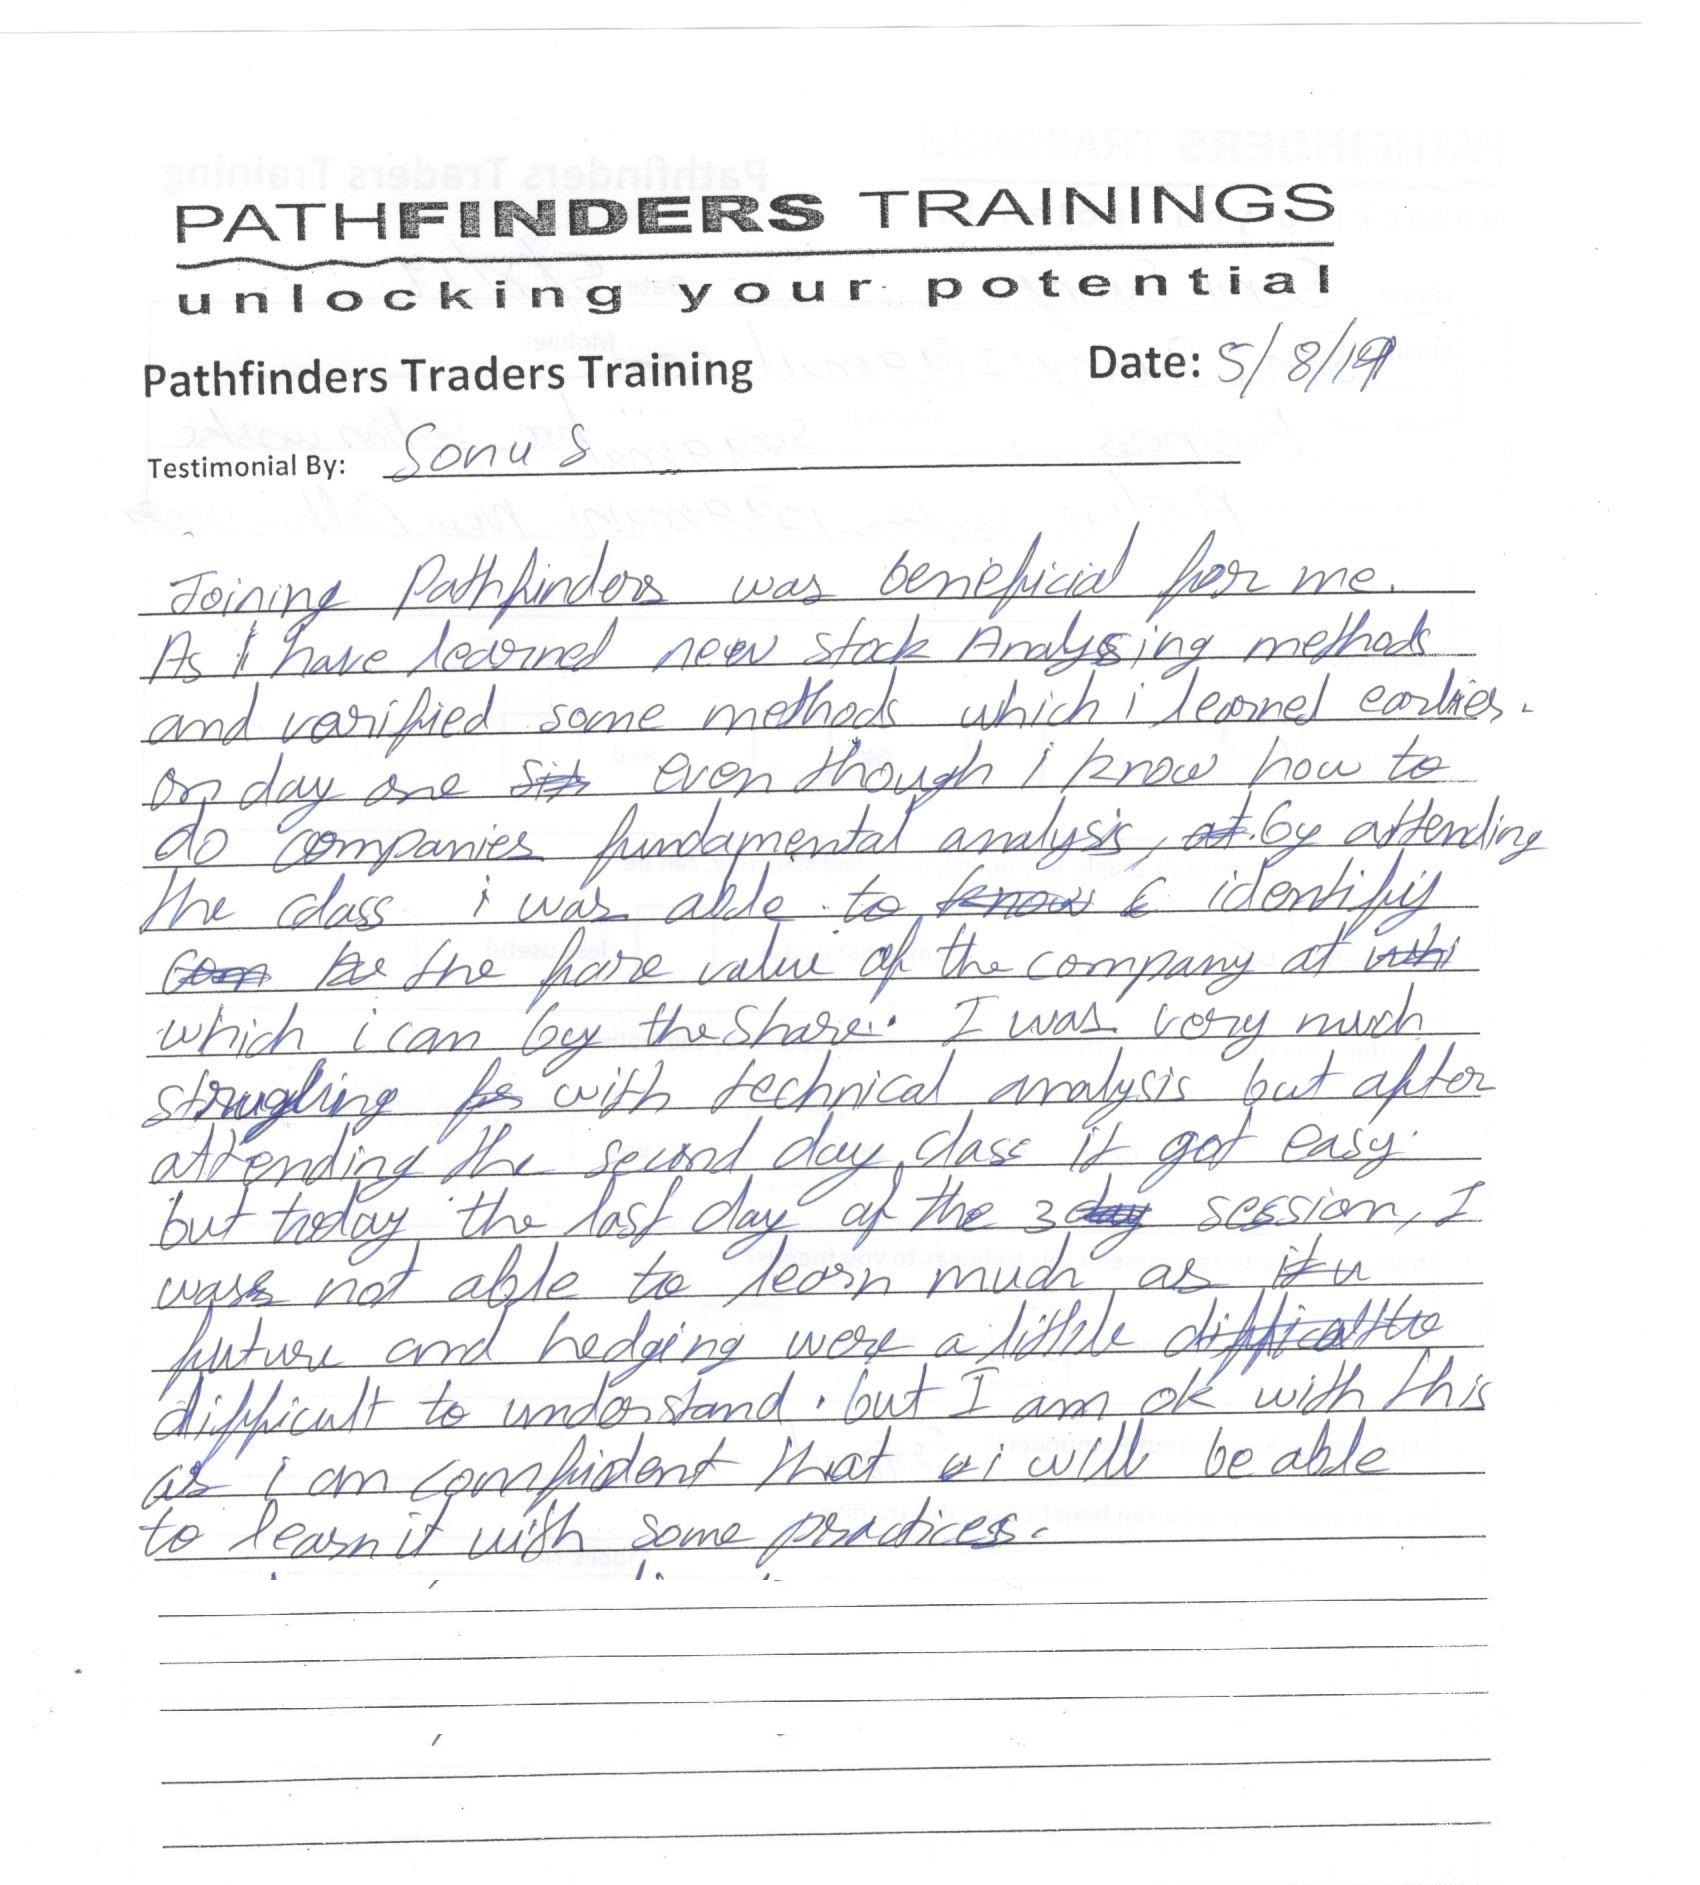 PATHFINDERS TRAININGS
unlocking your potential
Pathfinders Traders Training Date: 5/8/19
Testimonial By: Sonu S
Joining Pathfinders was beneficial for me.
As I have learned new stock Analysing methods
and varified some methods which i learned earlier.
on day one even though i know how to
do companies fundamental analysis, by attending
the class i was able to identifiy
the faire value of the company at
which i can by the Share. I was very much
strugling with technical analysis but after
attending the second day class it got easy.
but today the last day of the 3 session, I
was not able to learn much as
future and hedging were a little
difficult to understand. but I am ok with this
as i am comfident that i will be able
to learn it with some practices.